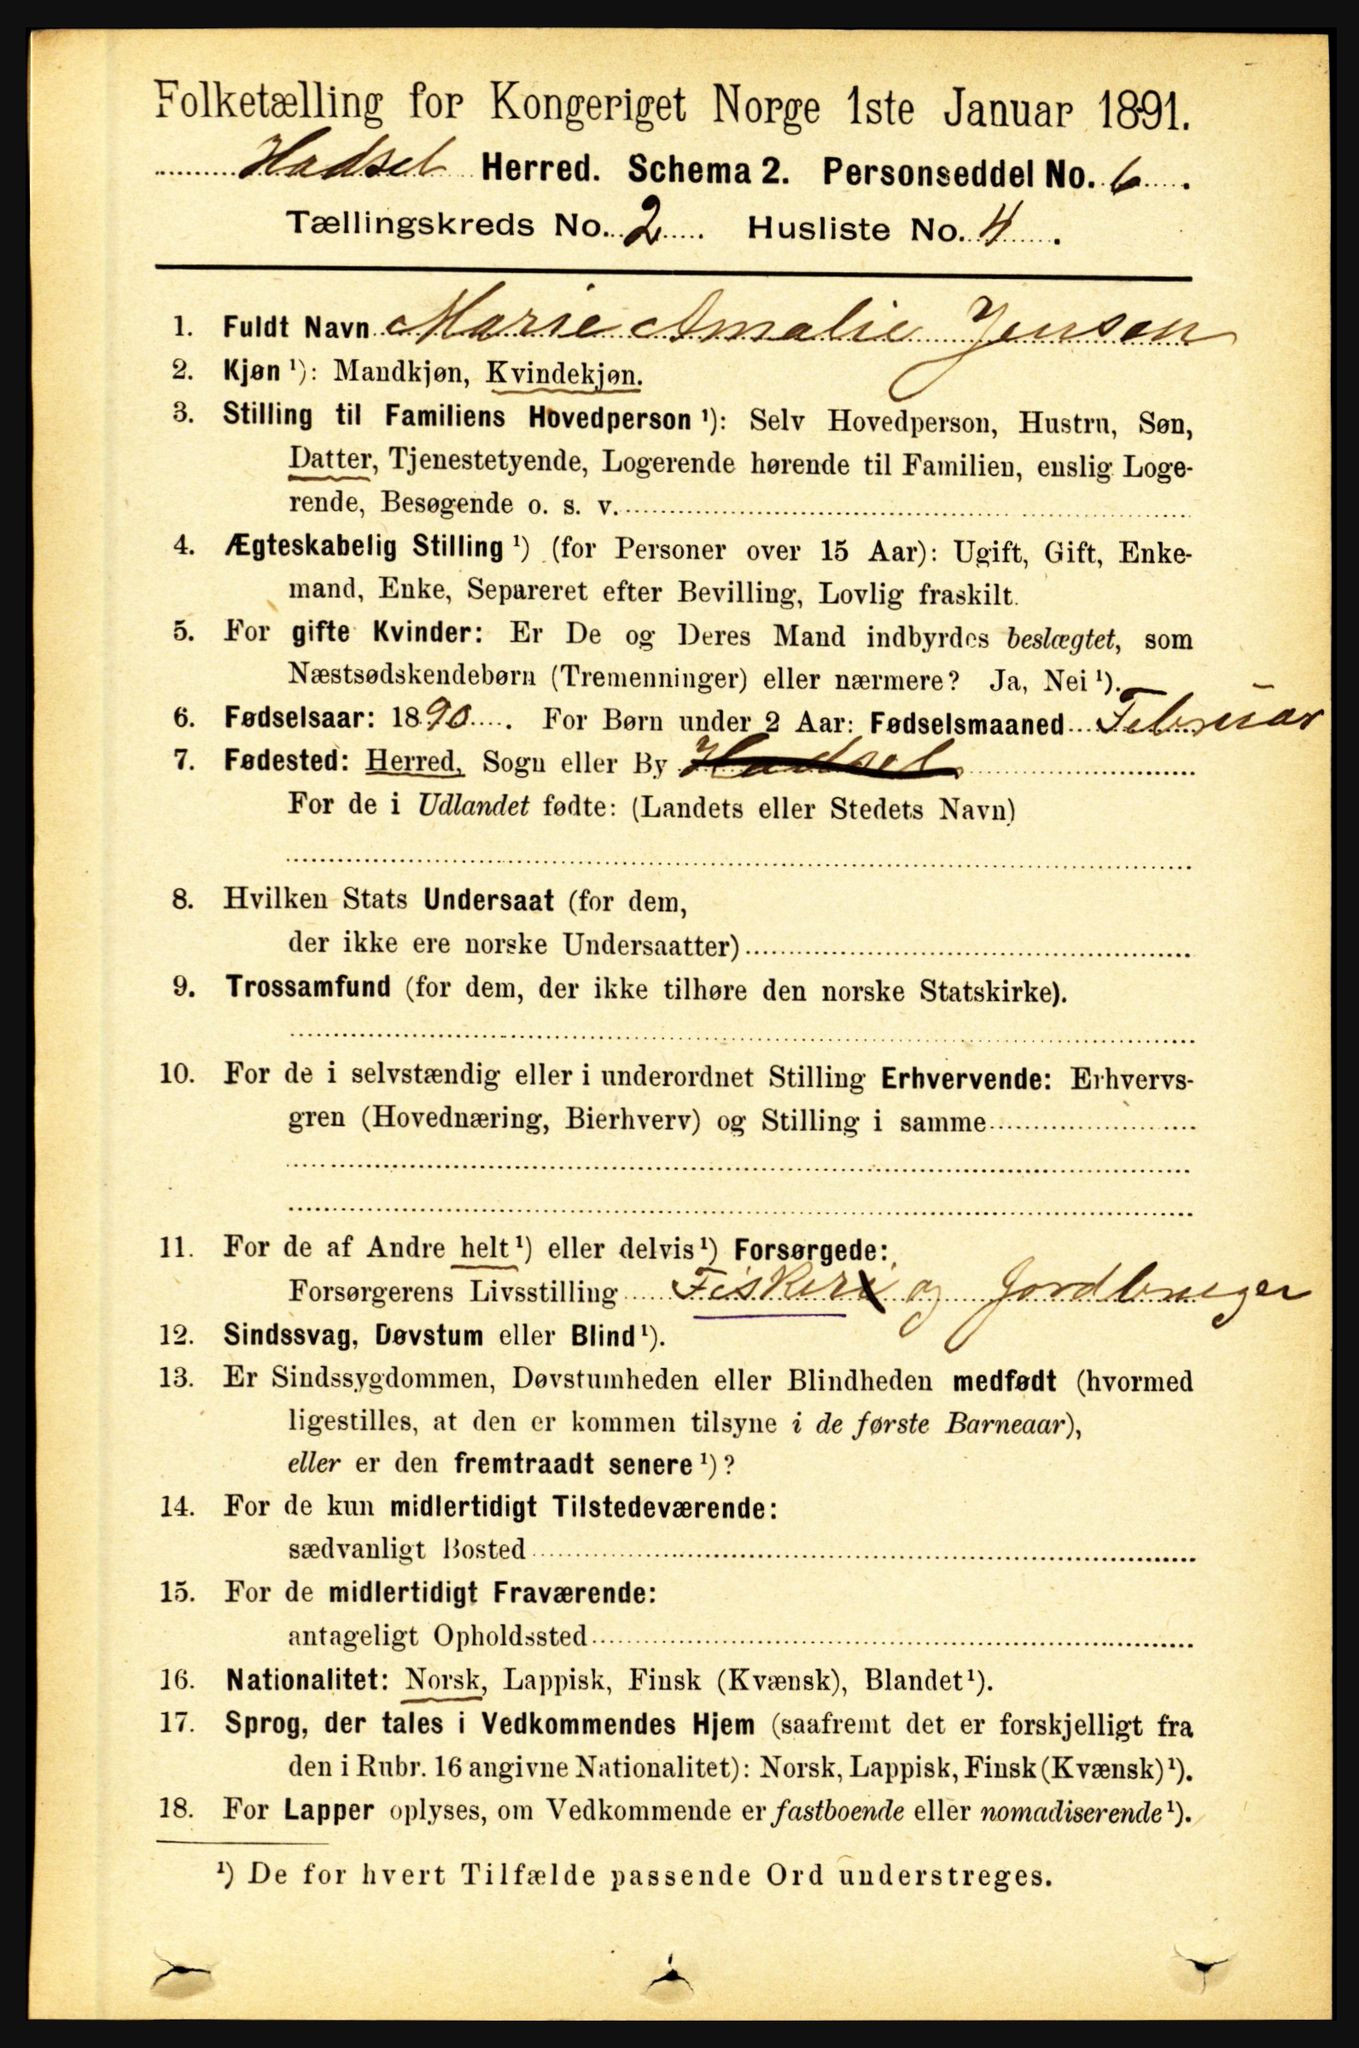 Folketælling for Kongeriget Norge 1ste Januar 1891.
Hadsel Herred. Schema 2. Personseddel No. 6.
Tællingskreds No. 2. Husliste No. 4.
1. Fuldt Navn Marie Amalie Jensen
2. Kjøn ¹): Mandkjøn, Kvindekjøn.
3. Stilling til Familiens Hovedperson ¹): Selv Hovedperson, Hustru, Søn,
Datter, Tjenestetyende, Logerende hørende til Familien, enslig Loge-
rende, Besøgende o. s. v.
4. Ægteskabelig Stilling ¹) (for Personer over 15 Aar): Ugift, Gift, Enke-
mand, Enke, Separeret efter Bevilling, Lovlig fraskilt.
5. For gifte Kvinder: Er De og Deres Mand indbyrdes beslægtet, som
Næstsødskendebørn (Tremenninger) eller nærmere? Ja, Nei ¹).
6. Fødselsaar: 1890. For Børn under 2 Aar: Fødselsmaaned Februar
7. Fødested: Herred, Sogn eller By Hadsel
For de i Udlandet fødte: (Landets eller Stedets Navn)
8. Hvilken Stats Undersaat (for dem,
der ikke ere norske Undersaatter)
9. Trossamfund (for dem, der ikke tilhøre den norske Statskirke).
10. For de i selvstændig eller i underordnet Stilling Erhvervende: Erhvervs-
gren (Hovednæring, Bierhverv) og Stilling i samme
11. For de af Andre helt ¹) eller delvis ¹) Forsørgede:
Forsørgerens Livsstilling Fisker og Jordbruger
12. Sindssvag, Døvstum eller Blind ¹).
13. Er Sindssygdommen, Døvstumheden eller Blindheden medfødt (hvormed
ligestilles, at den er kommen tilsyne i de første Barneaar),
eller er den fremtraadt senere ¹)?
14. For de kun midlertidigt Tilstedeværende:
sædvanligt Bosted
15. For de midlertidigt Fraværende:
antageligt Opholdssted
16. Nationalitet: Norsk, Lappisk, Finsk (Kvænsk), Blandet ¹).
17. Sprog, der tales i Vedkommendes Hjem (saafremt det er forskjelligt fra
den i Rubr. 16 angivne Nationalitet): Norsk, Lappisk, Finsk (Kvænsk) ¹).
18. For Lapper oplyses, om Vedkommende er fastboende eller nomadiserende ¹).
¹) De for hvert Tilfælde passende Ord understreges.